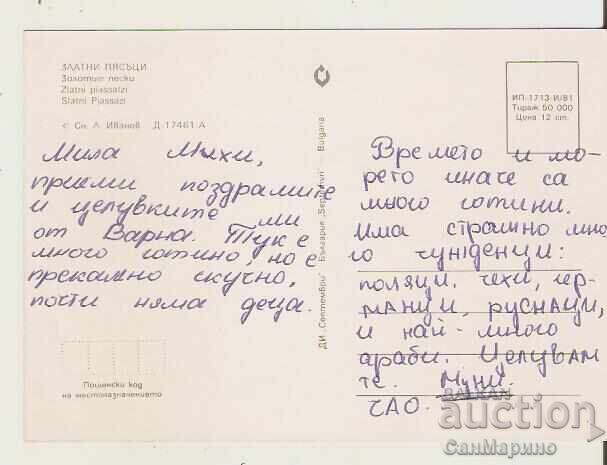 ЗЛАТНИ ПЯСЪЦИ
Золотые пески
Zlatni piassatzi
Slatni Pjassazi
Сн. Л. Иванов Д-17461 А
Мила Мухи,
приеми поздравите
и целувките ми
от Варна. Тук е
много готино, но е
прекалмно скучно,
почти няма деца.
Пощенски код
на местоназначението
ДИ „Септември" България „Septemvri" Bulgaria
ИП-1713-И/81
Тираж 50 000
Цена 12 ст.
Времето и мо-
рето иначе са
много готини.
Има страшно мно
го чужденци:
поляци, чехи, гер
манци, руснаци,
и най-много
араби. Целувам
те. Муни.
ЧАО.
BALKAN
auction
СанМарино